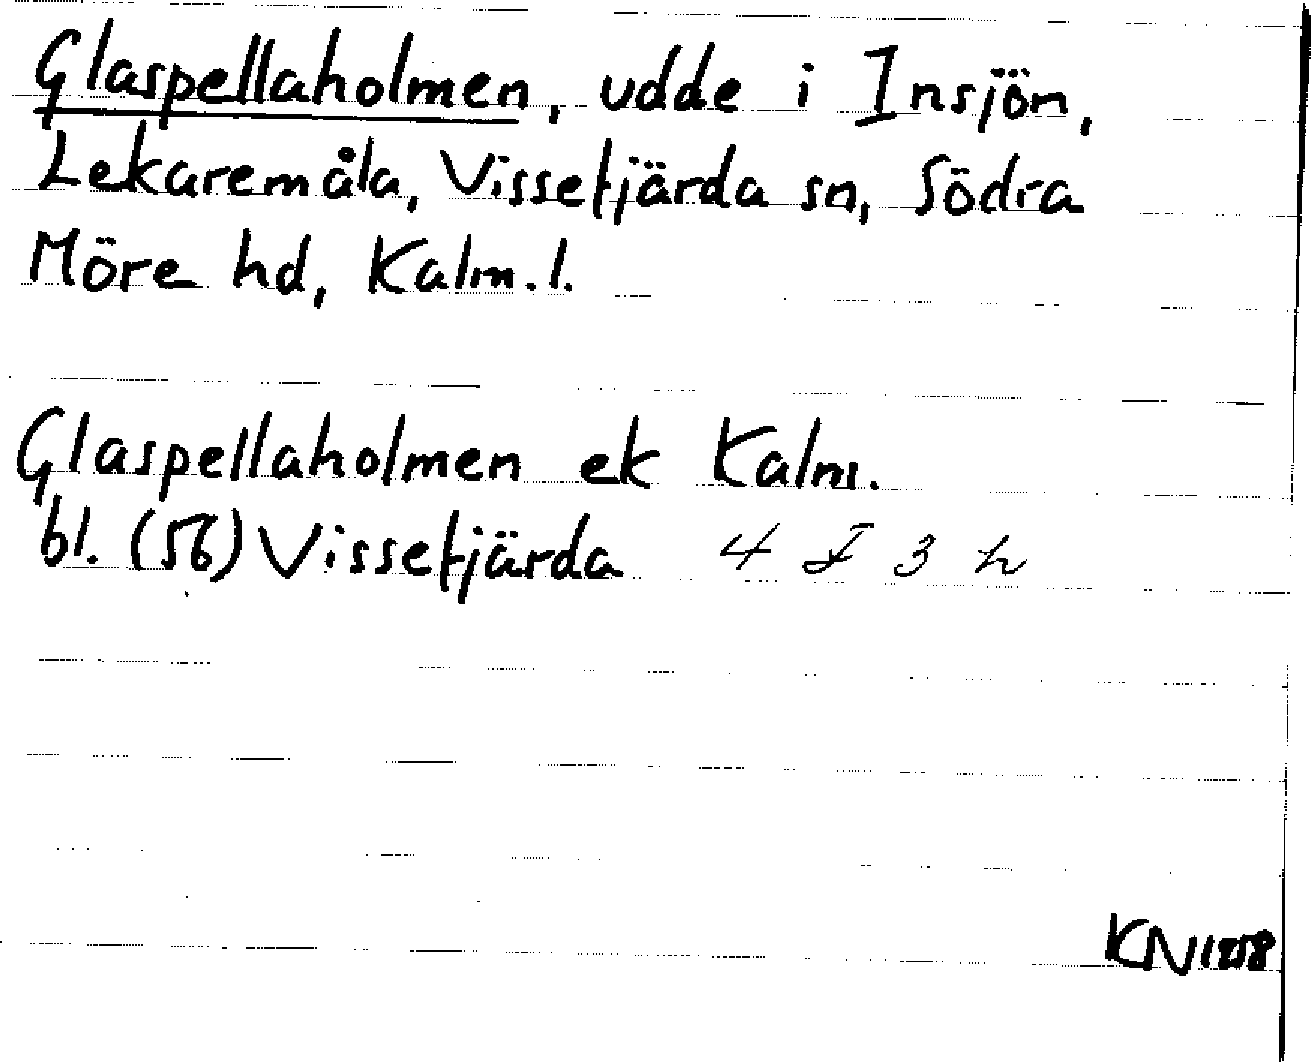 Glaspellaholmen, udde i Insjön,
Lekaremåla, Vissefjärda sn, Södra
Möre hd, Kalm. l.
Glaspellaholmen ek Kalm.
bl. (56) Vissefjärda 4 F 3 h